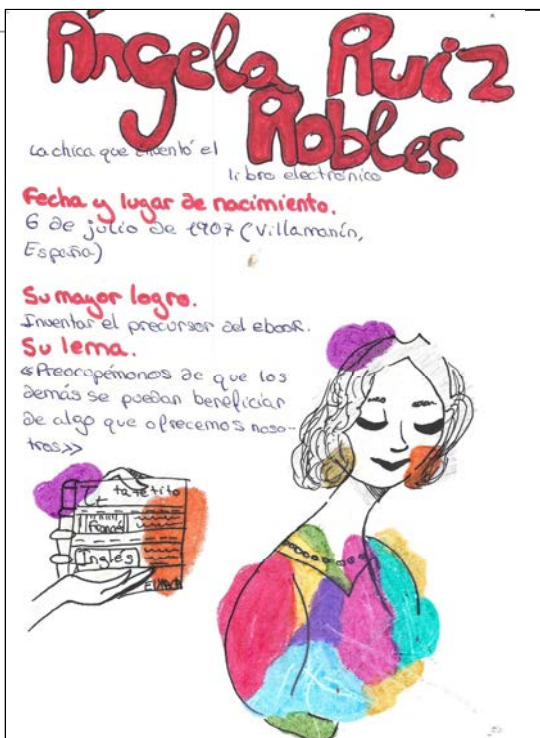 Ángela Ruiz
Robles
La chica que inventó el
libro electrónico
Fecha y lugar de nacimiento.
6 de julio de 1907 (Villamanín,
España)
Su mayor logro.
Inventar el precursor del ebook.
Su lema.
«Preocupémonos de que los
demás se puedan beneficiar
de algo que ofrecemos noso-
tros»
ta te ti to
Inglés